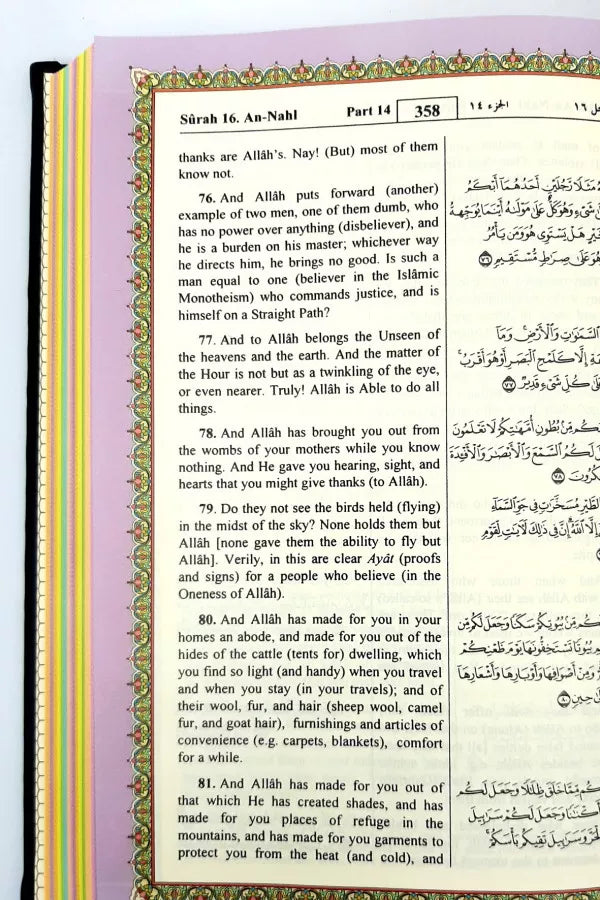 Sûrah 16. An-Nahl Part 14 358 الجزء ١٤ ١٦
thanks are Allâh's. Nay! (But) most of them
know not.
76. And Allâh puts forward (another)
example of two men, one of them dumb, who
has no power over anything (disbeliever), and
he is a burden on his master; whichever way
he directs him, he brings no good. Is such a
man equal to one (believer in the Islâmic
Monotheism) who commands justice, and is
himself on a Straight Path?
77. And to Allâh belongs the Unseen of
the heavens and the earth. And the matter of
the Hour is not but as a twinkling of the eye,
or even nearer. Truly! Allâh is Able to do all
things.
78. And Allâh has brought you out from
the wombs of your mothers while you know
nothing. And He gave you hearing, sight, and
hearts that you might give thanks (to Allâh).
79. Do they not see the birds held (flying)
in the midst of the sky? None holds them but
Allâh [none gave them the ability to fly but
Allâh]. Verily, in this are clear Ayât (proofs
and signs) for a people who believe (in the
Oneness of Allâh).
80. And Allâh has made for you in your
homes an abode, and made for you out of the
hides of the cattle (tents for) dwelling, which
you find so light (and handy) when you travel
and when you stay (in your travels); and of
their wool, fur, and hair (sheep wool, camel
fur, and goat hair), furnishings and articles of
convenience (e.g. carpets, blankets), comfort
for a while.
81. And Allâh has made for you out of
that which He has created shades, and has
made for you places of refuge in the
mountains, and has made for you garments to
protect you from the heat (and cold), and
مَثَلًا رَّجُلَيْنِ أَحَدُهُمَا أَبْكَمُ
شَىْءٍ وَهُوَ كَلٌّ عَلَىٰ مَوْلَىٰهُ أَيْنَمَا يُوَجِّههُّ
هَلْ يَسْتَوِى هُوَ وَمَن يَأْمُرُ
هُوَ عَلَىٰ صِرَٰطٍ مُّسْتَقِيمٍ ٧٦
السَّمَٰوَٰتِ وَالْأَرْضِ وَمَا
إِلَّا كَلَمْحِ الْبَصَرِ أَوْ هُوَ أَقْرَبُ
كُلِّ شَىْءٍ قَدِيرٌ ٧٧
مِّنۢ بُطُونِ أُمَّهَٰتِكُمْ لَا تَعْلَمُونَ
لَكُمُ السَّمْعَ وَالْأَبْصَٰرَ وَالْأَفْـِٔدَةَ
٧٨
الطَّيْرِ مُسَخَّرَٰتٍ فِى جَوِّ السَّمَآءِ
إِلَّا اللَّهُ إِنَّ فِى ذَٰلِكَ لَءَايَٰتٍ لِّقَوْمٍ
مِّنۢ بُيُوتِكُمْ سَكَنًا وَجَعَلَ لَكُم مِّن
بُيُوتًا تَسْتَخِفُّونَهَا يَوْمَ ظَعْنِكُمْ
وَمِنْ أَصْوَافِهَا وَأَوْبَارِهَا وَأَشْعَارِهَا
حِينٍ ٨٠
مِّمَّا خَلَقَ ظِلَٰلًا وَجَعَلَ لَكُم
أَكْنَٰنًا وَجَعَلَ لَكُمْ سَرَٰبِيلَ
الْحَرَّ وَسَرَٰبِيلَ تَقِيكُم بَأْسَكُمْ